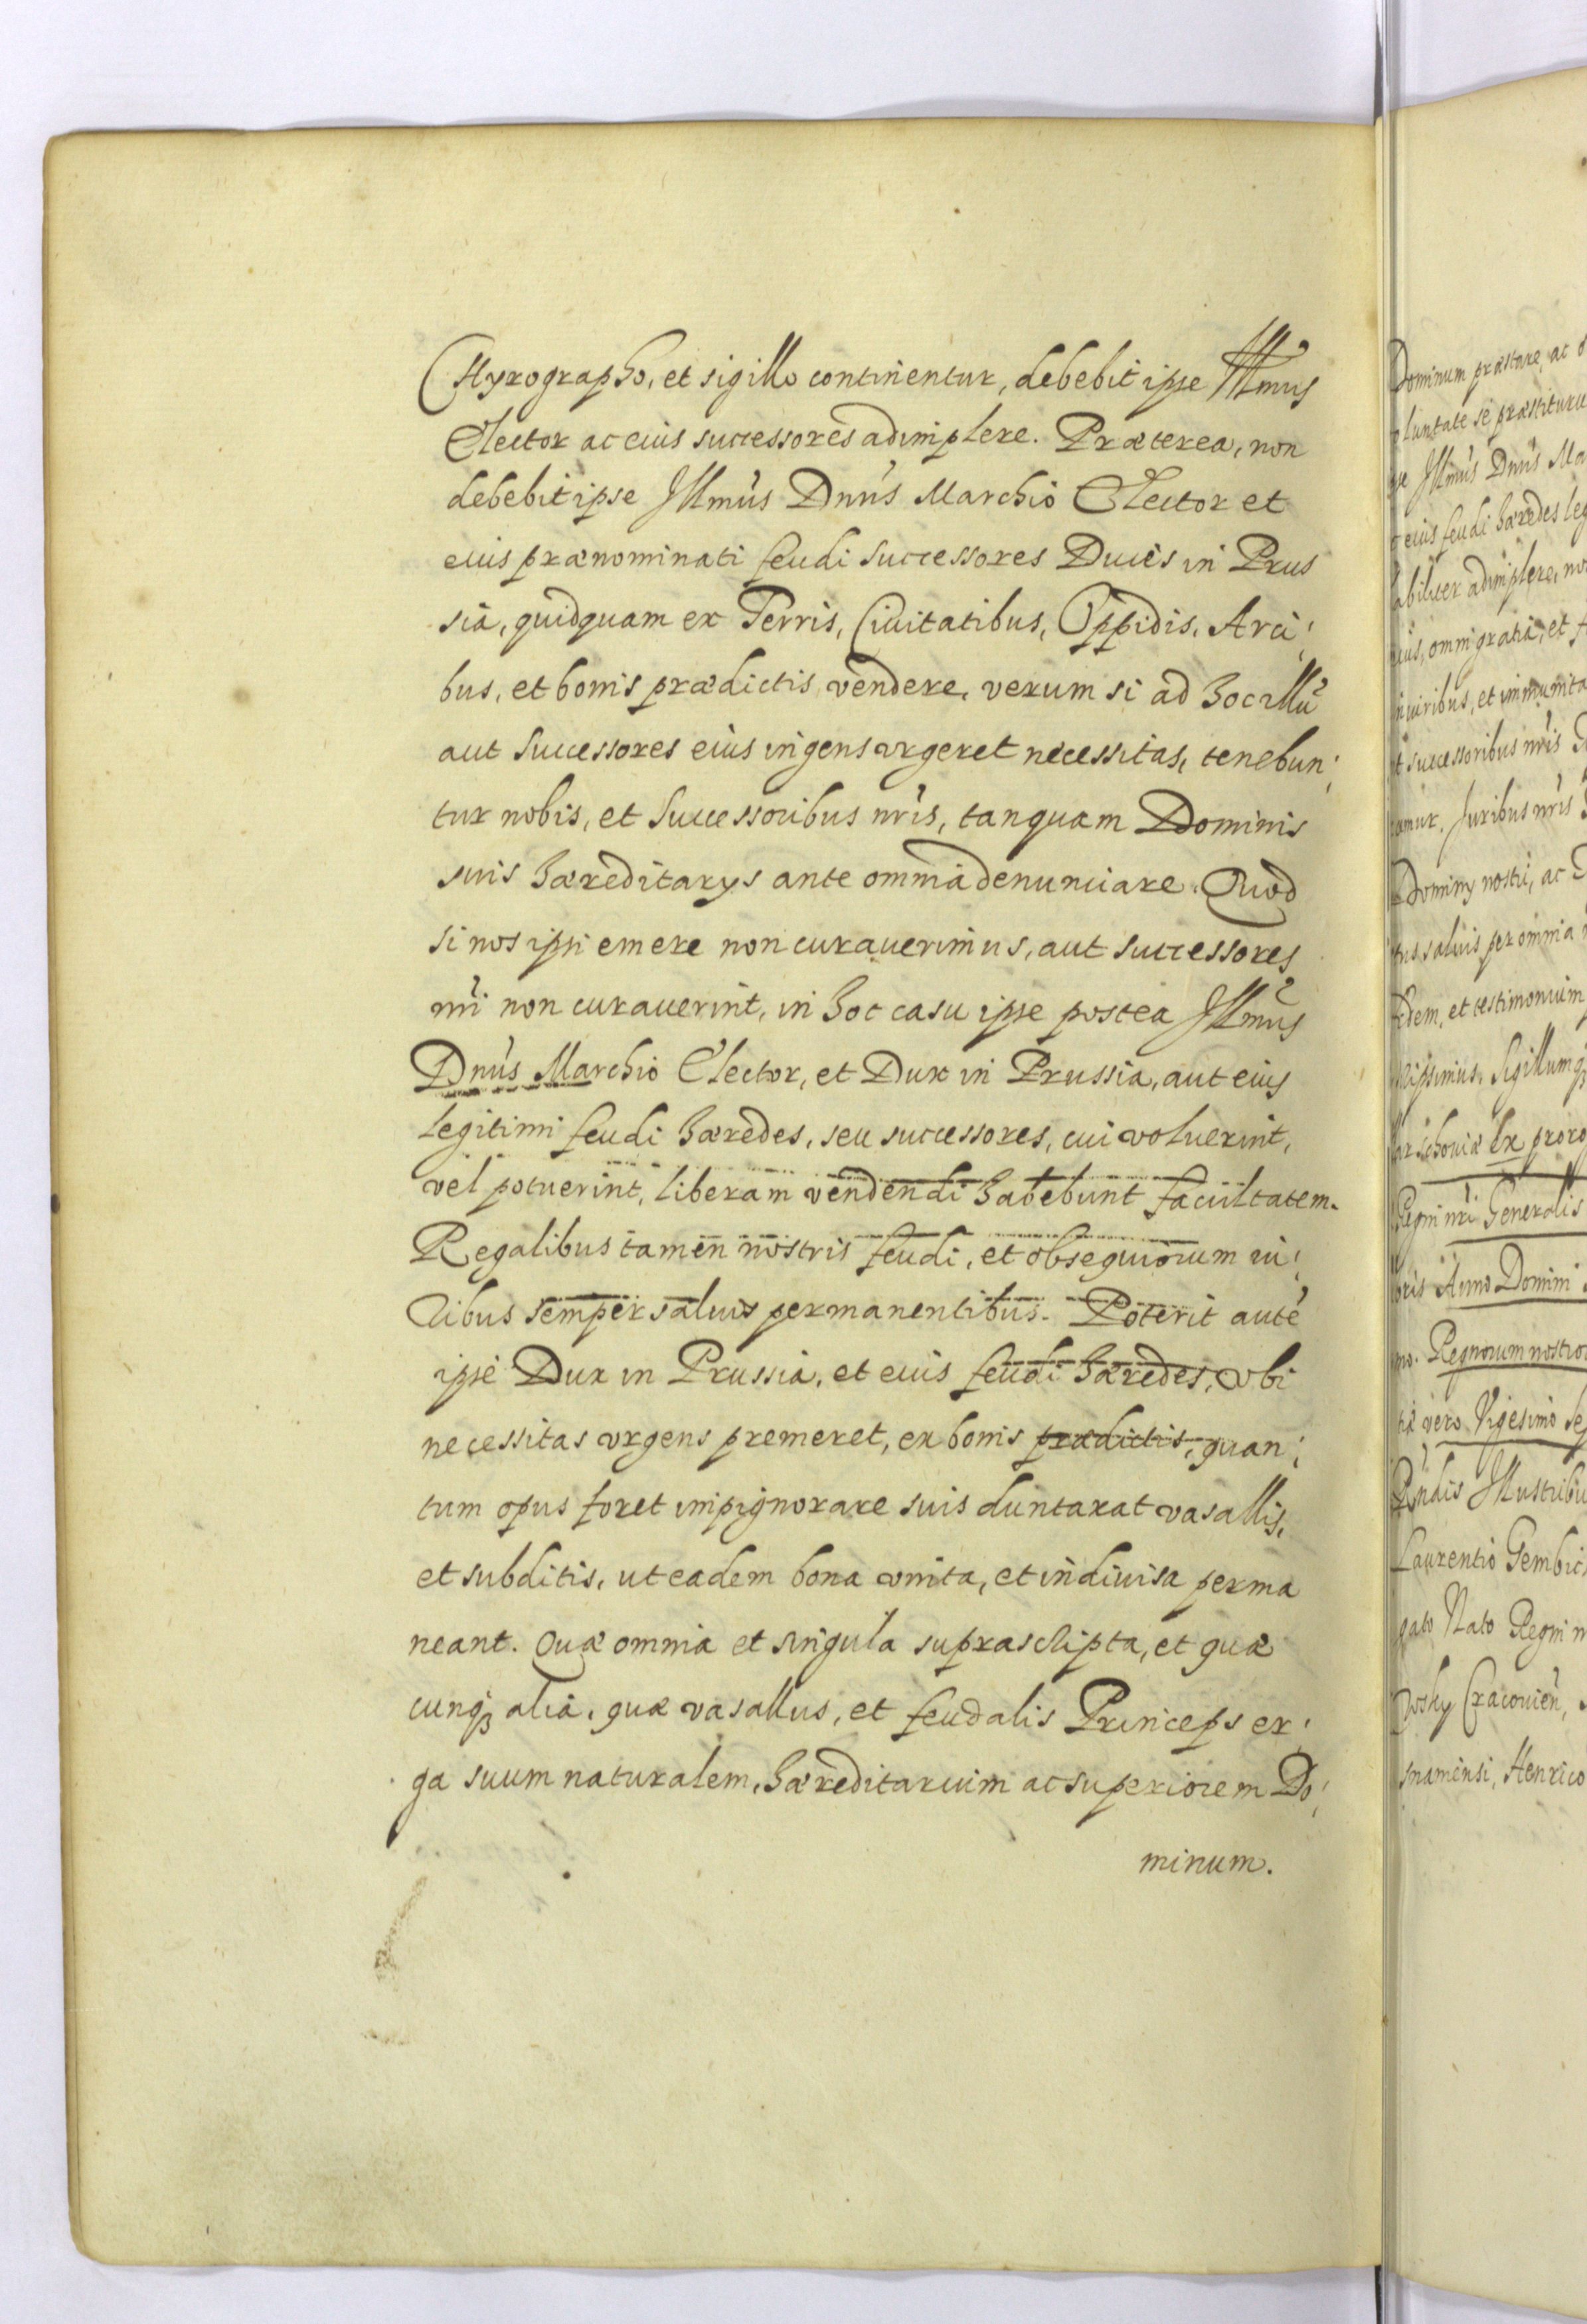 Chyrographo, et sigillo continentur, debebit ipse Illmus
Elector ac eius successores adimplere. Præterea, non
debebit ipse Illmus Dnus Marchio Elector et
eius prænominati feudi Successores Duces in Prus
sia, quidquam ex Terris, Ciuitatibus, Oppidis, Arci:
bus, et bonis prædictis vendere, verum si ad hoc illũ
aut Successores eius ingens vrgeret necessitas, tenebun:
tur nobis, et Successoribus nris, tanquam Dominis
suis hæreditarys ante omnia denunciare. Quod
si nos ipsi emere non curauerimus, aut successores
nri non curauerint, in hoc casu ipse postea Illmus
Dnus Marchio Elector, et Dux in Prussia, aut eius
legitimi feudi hæredes, seu successores, cui voluerint,
vel potuerint, liberam vendendi habebunt facultatem.
Regalibus tamen nostris feudi, et obsequiorum iu:
ribus semper saluis permanentibus. Poterit autē
ipse Dux in Prussia, et eius feudi hæredes, vbi
necessitas vrgens premeret, ex bonis prædictis, quan:
tum opus foret impignorare suis duntaxat vasallis,
et subditis, ut eadem bona vnita, et indiuisa perma
neant. Quæ omnia et singula suprascripta, et quæ
cunqꝫ alia, quæ vasallus, et feudalis Princeps er:
ga suum naturalem, hæreditarium ac superiorem Do:
minum.
Dominum præstare, ac
luntate se præstituru
Illmus Dnus Ma
eius feudi hæredes leg
abiliter adimplere, no
omni gratia, et
et immunita
successoribus nris
Juribus nris
Dominy nostri, ac
saluis per omnia
et testimonium
Sigillumqꝫ
Ex proro
Regni nri Generalis
Anno Domini
Regnorum nostro
vero Vigesimo Se
Illustribu
Laurentio Gembic
gato Nato Regni n
Cracouien,
snaniensi, Henrico